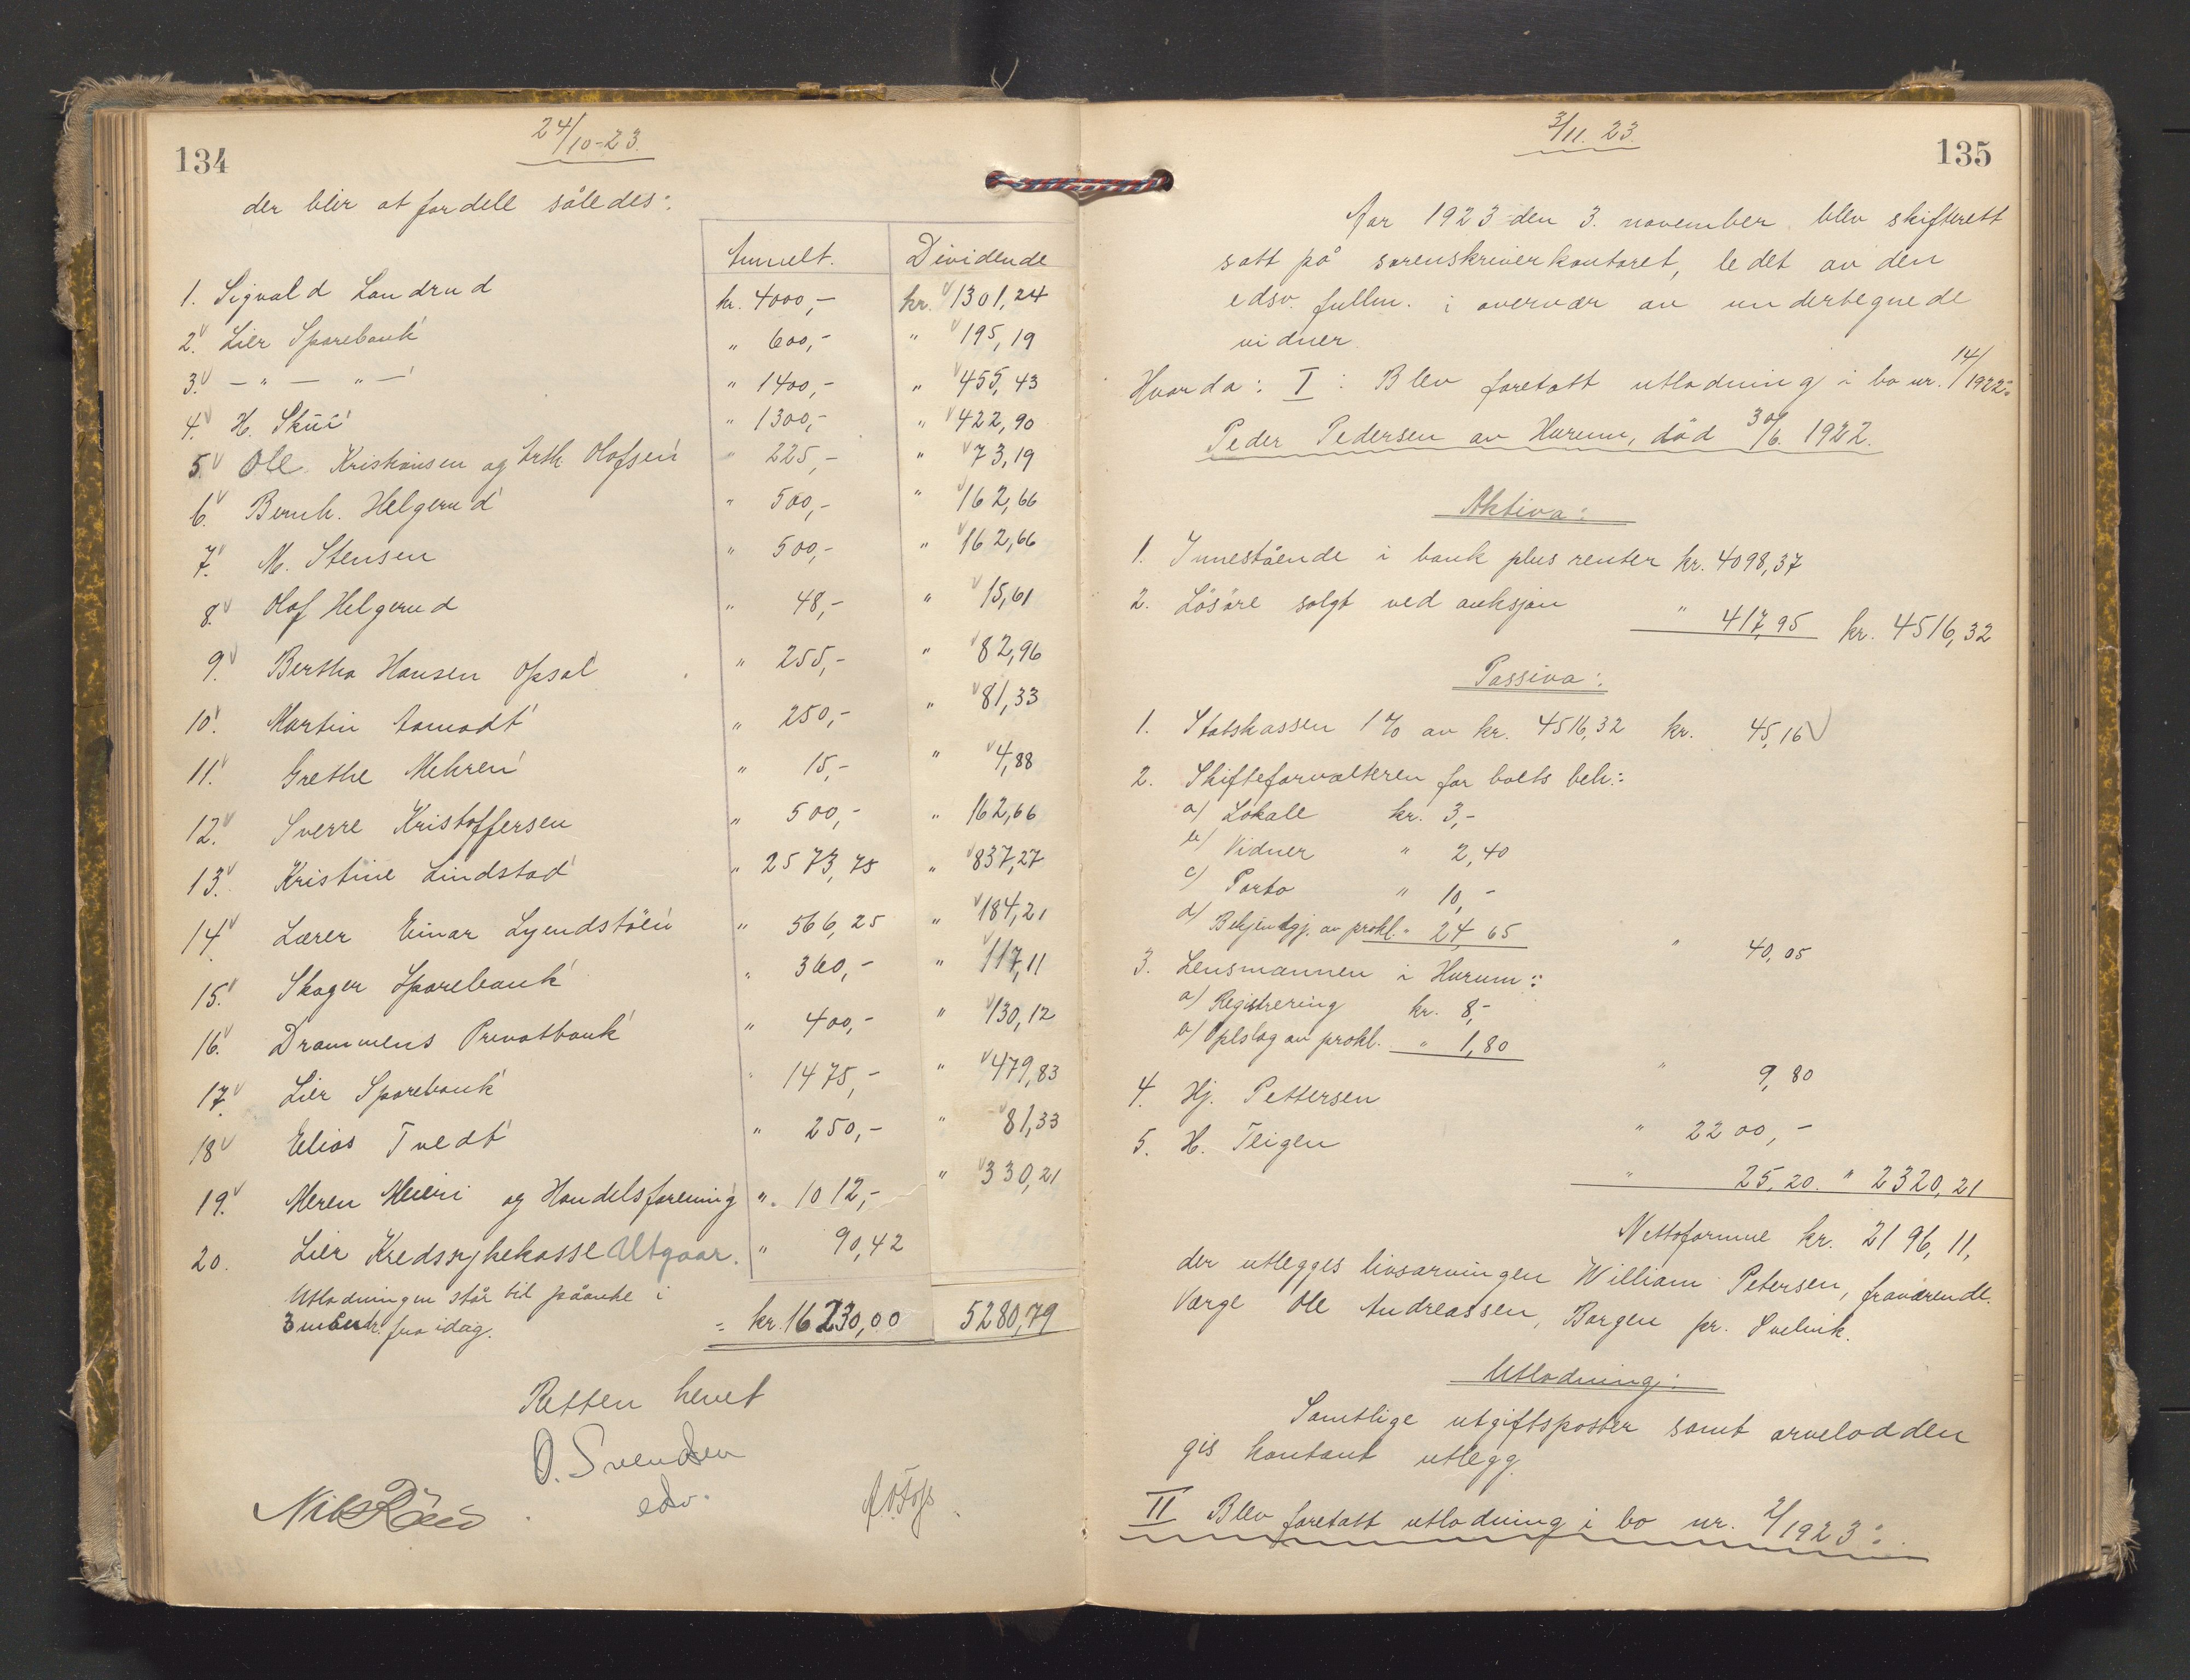 134
24/10-23.
der blir at fordele således:
Anmelt. Dividende
1. Sigvald Landrud kr. 4000,- kr. 1301,24
2. Lier Sparebank " 600,- " 195,19
3. - " - " - " 1400,- " 455,43
4. H. Skui " 1300,- " 422,90
5. Ole Kristiansen og Arth. Olafsen " 225,- " 73,19
6. Bernh. Helgerud " 500,- " 162,66
7. M. Stensen " 500,- " 162,66
8. Olaf Helgerud " 48,- " 15,61
9. Bertha Hansen Opsal " 255,- " 82,96
10. Martin Aamodt " 250,- " 81,33
11. Grethe Mehren " 15,- " 4,88
12. Sverre Kristoffersen " 500,- " 162,66
13. Kristine Lindstad " 2573,75 " 837,27
14. Lærer Einar Lyndstöen " 566,25 " 184,21
15. Skoger Sparebank " 360,- " 117,11
16. Drammens Privatbank " 400,- " 130,12
17. Lier Sparebank " 1475,- " 479,83
18. Elias Tvedt " 250,- " 81,33
19. Meren Meieri og Handelsforening " 1012,- " 330,21
20. Lier Kredssykekasse Utgaar. " 90,42
Utlodningen står til påanke i
3 fra idag. = kr. 16230,00 5280,79
Retten hevet
O. Svendsen
edv.
135
3/11. 23.
Aar 1923 den 3. november blev skifterett
satt på sorenskriverkontoret, ledet av den
edsv. fullm. i overvær av undertegnede
vidner.
Hvorda: I: Blev foretatt utlodning i bo nr. 14/1922:
Peder Pedersen av Hurum, död 30/6. 1922.
Aktiva:
1. Innestående i bank plus renter kr. 4098,37
2. Lösöre solgt ved auksjon " 417,95 kr. 4516,32
Passiva:
1. Statskassen 1% av kr. 4516,32 kr. 45,16
2. Skifteforvalteren for boets beh.:
a/ Lokale kr. 3,-
b/ Vidner " 2,40
c/ Porto " 10,-
d/ Bekjentgj. av prokl. " 24,65 " 40,05
3. Lensmannen i Hurum:
a/ Registrering kr. 8,-
b/ Oplslag av prokl. " 1,80 " 9,80
4. Hj. Pettersen " 2200,-
5. H. Teigen " 25,20. " 2320,21
Nettoformue kr. 2196,11,
der utlegges livsarvingen William Petersen, fraværende.
Værge Ole Andreassen, Bergen pr. Svelvik.
Utlodning:
Samtlige utgiftsposter samt arvelodden
gis kontant utlegg.
II Blev foretatt utlodning i bo nr. 2/1923: